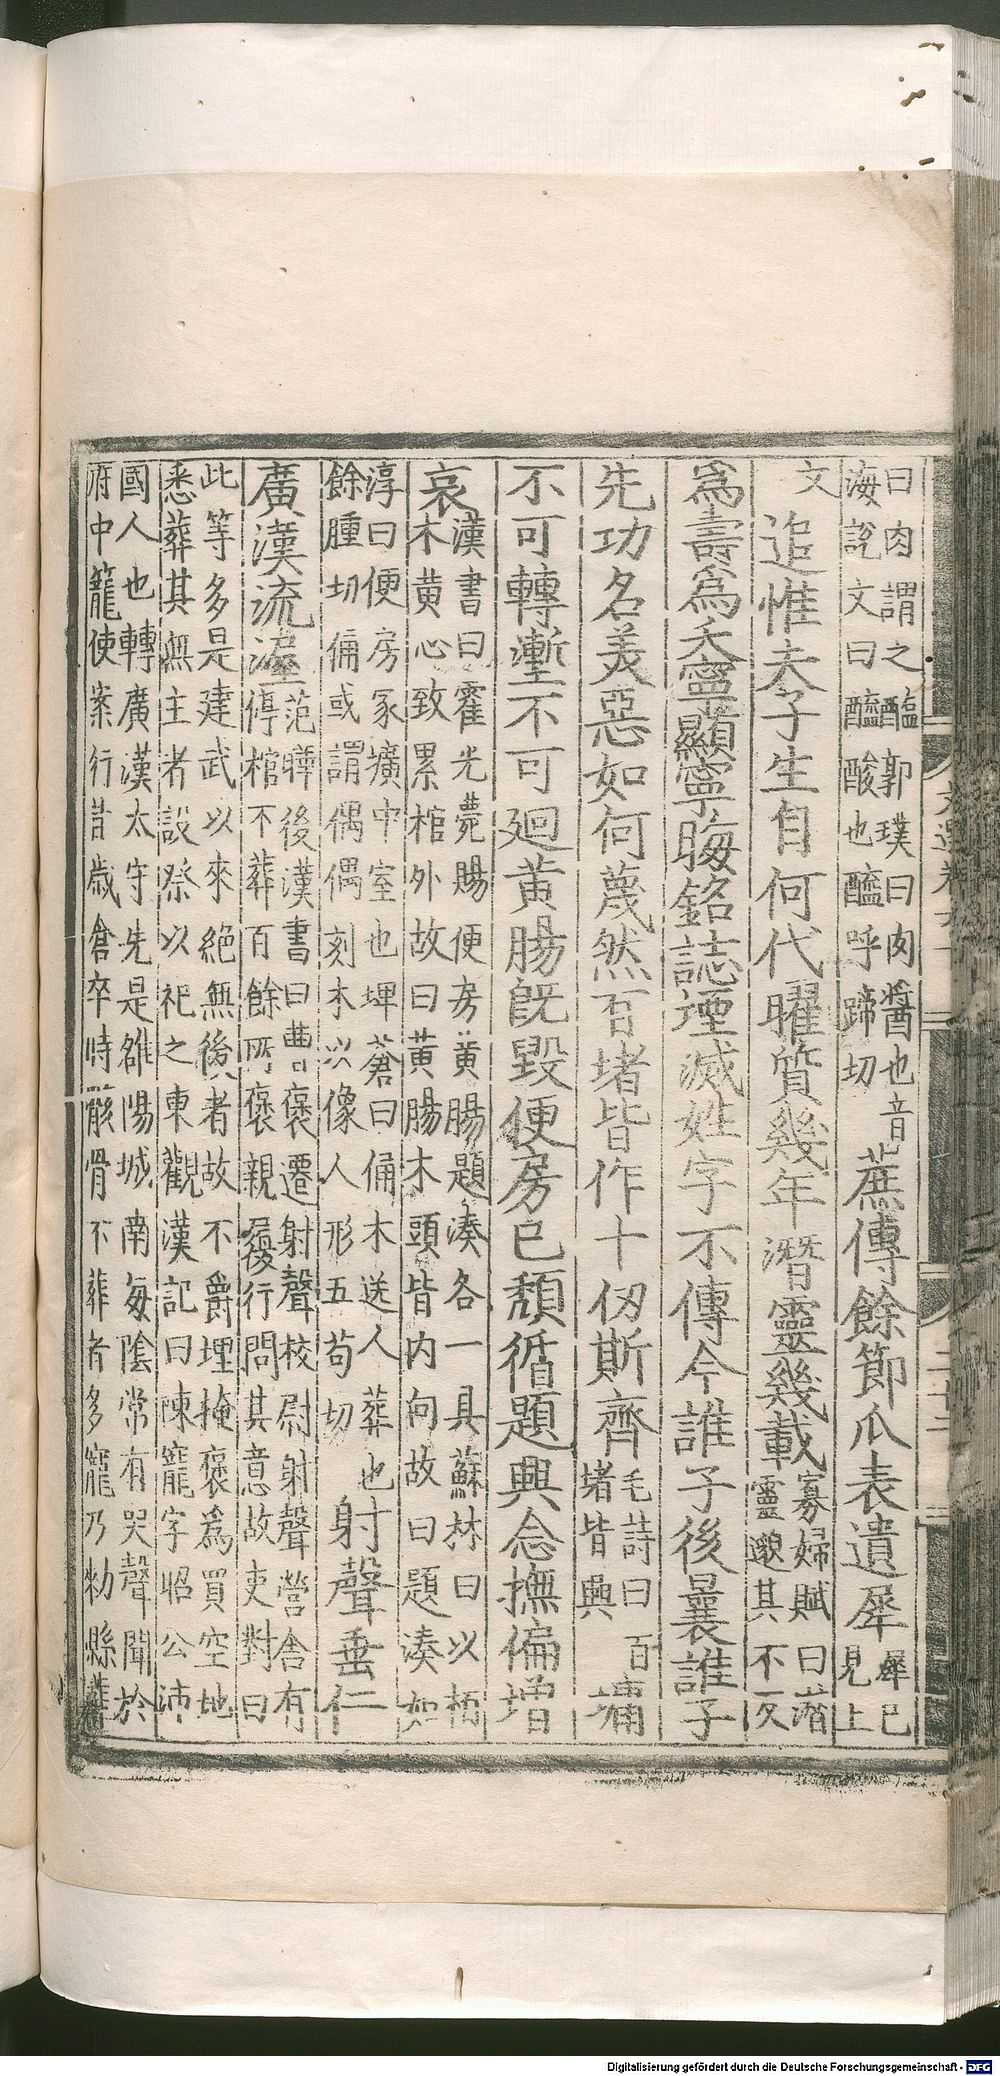 曰肉謂之醢郭璞曰肉醬也音
海說文曰醯酸也醯呼蹄切
蔗傳餘節瓜表遺犀
犀已
見上
文
追惟夫子生自何代曜質幾年潛靈幾載
寡婦賦曰潛
靈邈其不反
為壽為夭寧顯寧晦銘誌堙滅姓字不傳今誰子後曩誰子
先功名美惡如何蔑然百堵皆作十仞斯齊
毛詩曰百
堵皆興
墉
不可轉塹不可廻黃腸旣毀便房已頹循題興念撫俑增
哀
漢書曰霍光薨賜便房黃腸題湊各一具蘇林曰以栢
木黃心致累棺外故曰黃腸木頭皆内向故曰題湊如
淳曰便房冢壙中室也埤蒼曰俑木送人葬也
餘腫切俑或謂偶偶刻木以像人形五苟切
射聲垂仁
廣漢流渥
范曄後漢書曰曹褒遷射聲校尉射聲營舍有
停棺不葬百餘所褒親履行問其意故吏對曰
此等多是建武以來絕無後者故不爵埋掩褒為買空地
悉葬其無主者設祭以祀之東觀漢記曰陳寵字昭公沛
國人也轉廣漢太守先是雒陽城南每陰常有哭聲聞於
府中寵使案行昔歲倉卒時骸骨不葬者多寵乃勑縣葬
文選卷六十
Digitalisierung gefördert durch die Deutsche Forschungsgemeinschaft - DFG